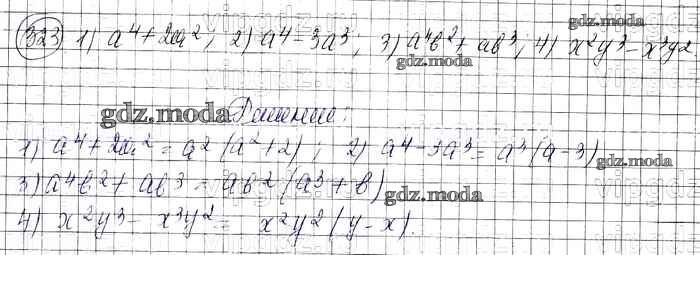 323 1) a⁴+2a²; 2) a⁴-3a³; 3) a⁴b²+ab³; 4) x²y³-x³y².
gdz.moda
gdz.moda
gdz.moda Решение:
1) a⁴+2a²=a²(a²+2); 2) a⁴-3a³=a³(a-3)
gdz.moda
3) a⁴b²+ab³=ab²(a³+b)
gdz.moda
4) x²y³-x³y²= x²y²(y-x).